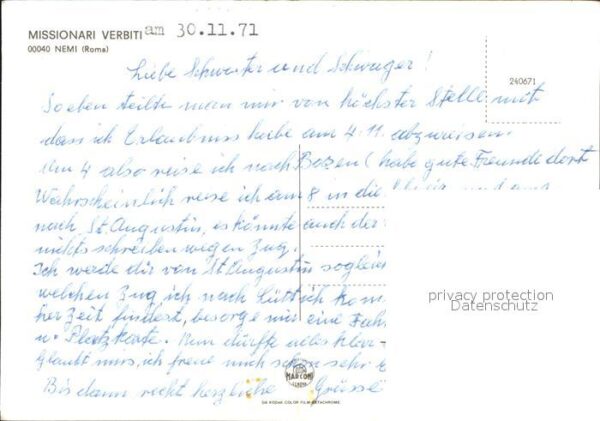 MISSIONARI VERBITI
am 30.11.71
00040 NEMI (Roma)
240671
Liebe Schwester und Schwager!
Soeben teilte man mir von höchster Stelle mit
dass ich Erlaubnis habe am 4.11. abzureisen.
Am 4 also reise ich nach Bozen (habe gute Freunde dort
Wahrscheinlich reise ich am 8 in die und
nach St. Augustin, es könnte auch der
nichts schreiben wegen Zug.
Ich werde dir von St Augustin sogleich
welchen Zug ich nach Lüttich kom
herzeit findest, besorge mir eine Fah
u. Platzkarte. Nun dürfte alles klar
Glaubt mirs, ich freue mich schon sehr
Bis dann recht herzliche Grüsse
privacy protection
Datenschutz
MARCONI
DA KODAK COLOR FILM-EKTACHROME